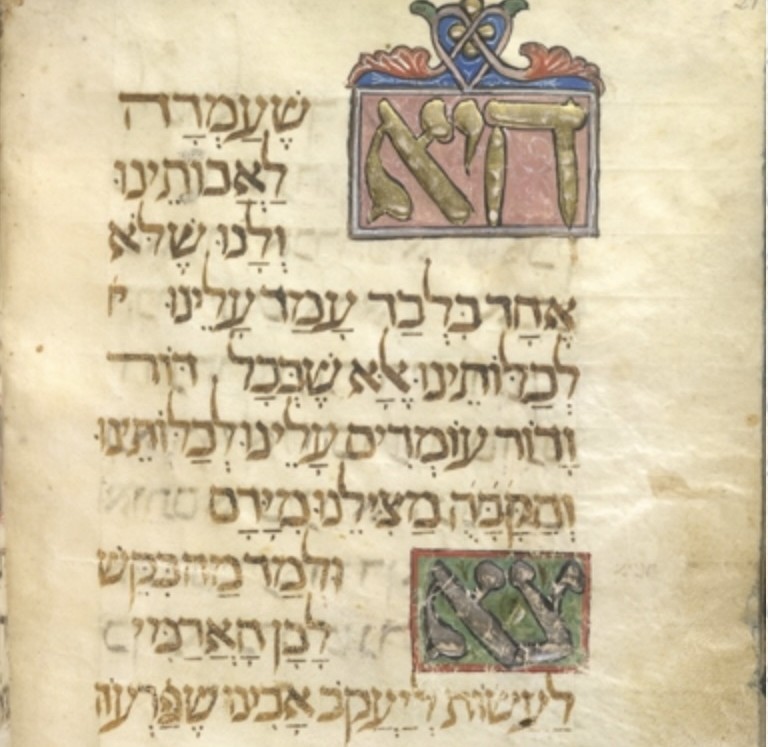 היא שעמדה
לאבותינו
ולנו שלא
אחד בלבד עמד עלינו
לכלותינו אלא שבכל דור
ודור עומדים עלינו לכלותינו
והקבה מצילנו מידם
צא ולמד מה בקש
לבן הארמי
לעשות ליעקב אבינו שפרעה